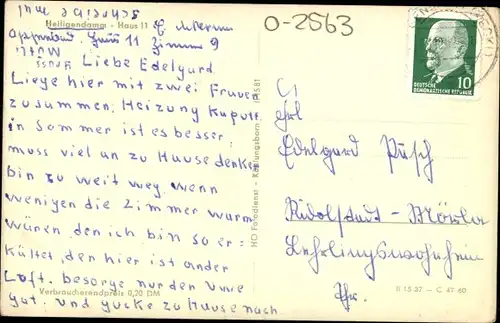 schreibe mal
Heiligendamm - Haus 11
Haus 11 Zimmer 9
O-2563
Liebe Edelgard
Liege hier mit zwei Frauen
zusammen. Heizung kaputt
in Sommer ist es besser.
muss viel an zu Hause denken
bin zu weit weg. wenn
wenigen die Zimmer warm
wären den ich bin so er=
kältet den hier ist ander
Luft. besorge nur den Uwe
gut. und gucke zu Hause nach
Verbraucherendpreis 0,20 DM
HO Fotodienst - Kühlungsborn
10
DEUTSCHE
DEMOKRATISCHE REPUBLIK
Frl
Edelgard Pusch
Rudolstadt-
Lehrlingswohnheim
Thr.
B 15 37 - C 47 60